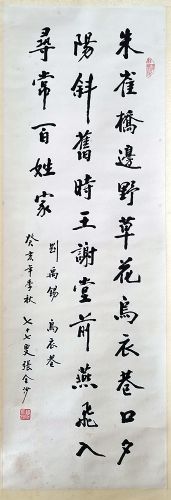 朱雀橋邊野草花烏衣巷口夕
陽斜舊時王謝堂前燕飛入
尋常百姓家
劉禹錫 烏衣巷
癸亥年季秋 七十七叟張金沙